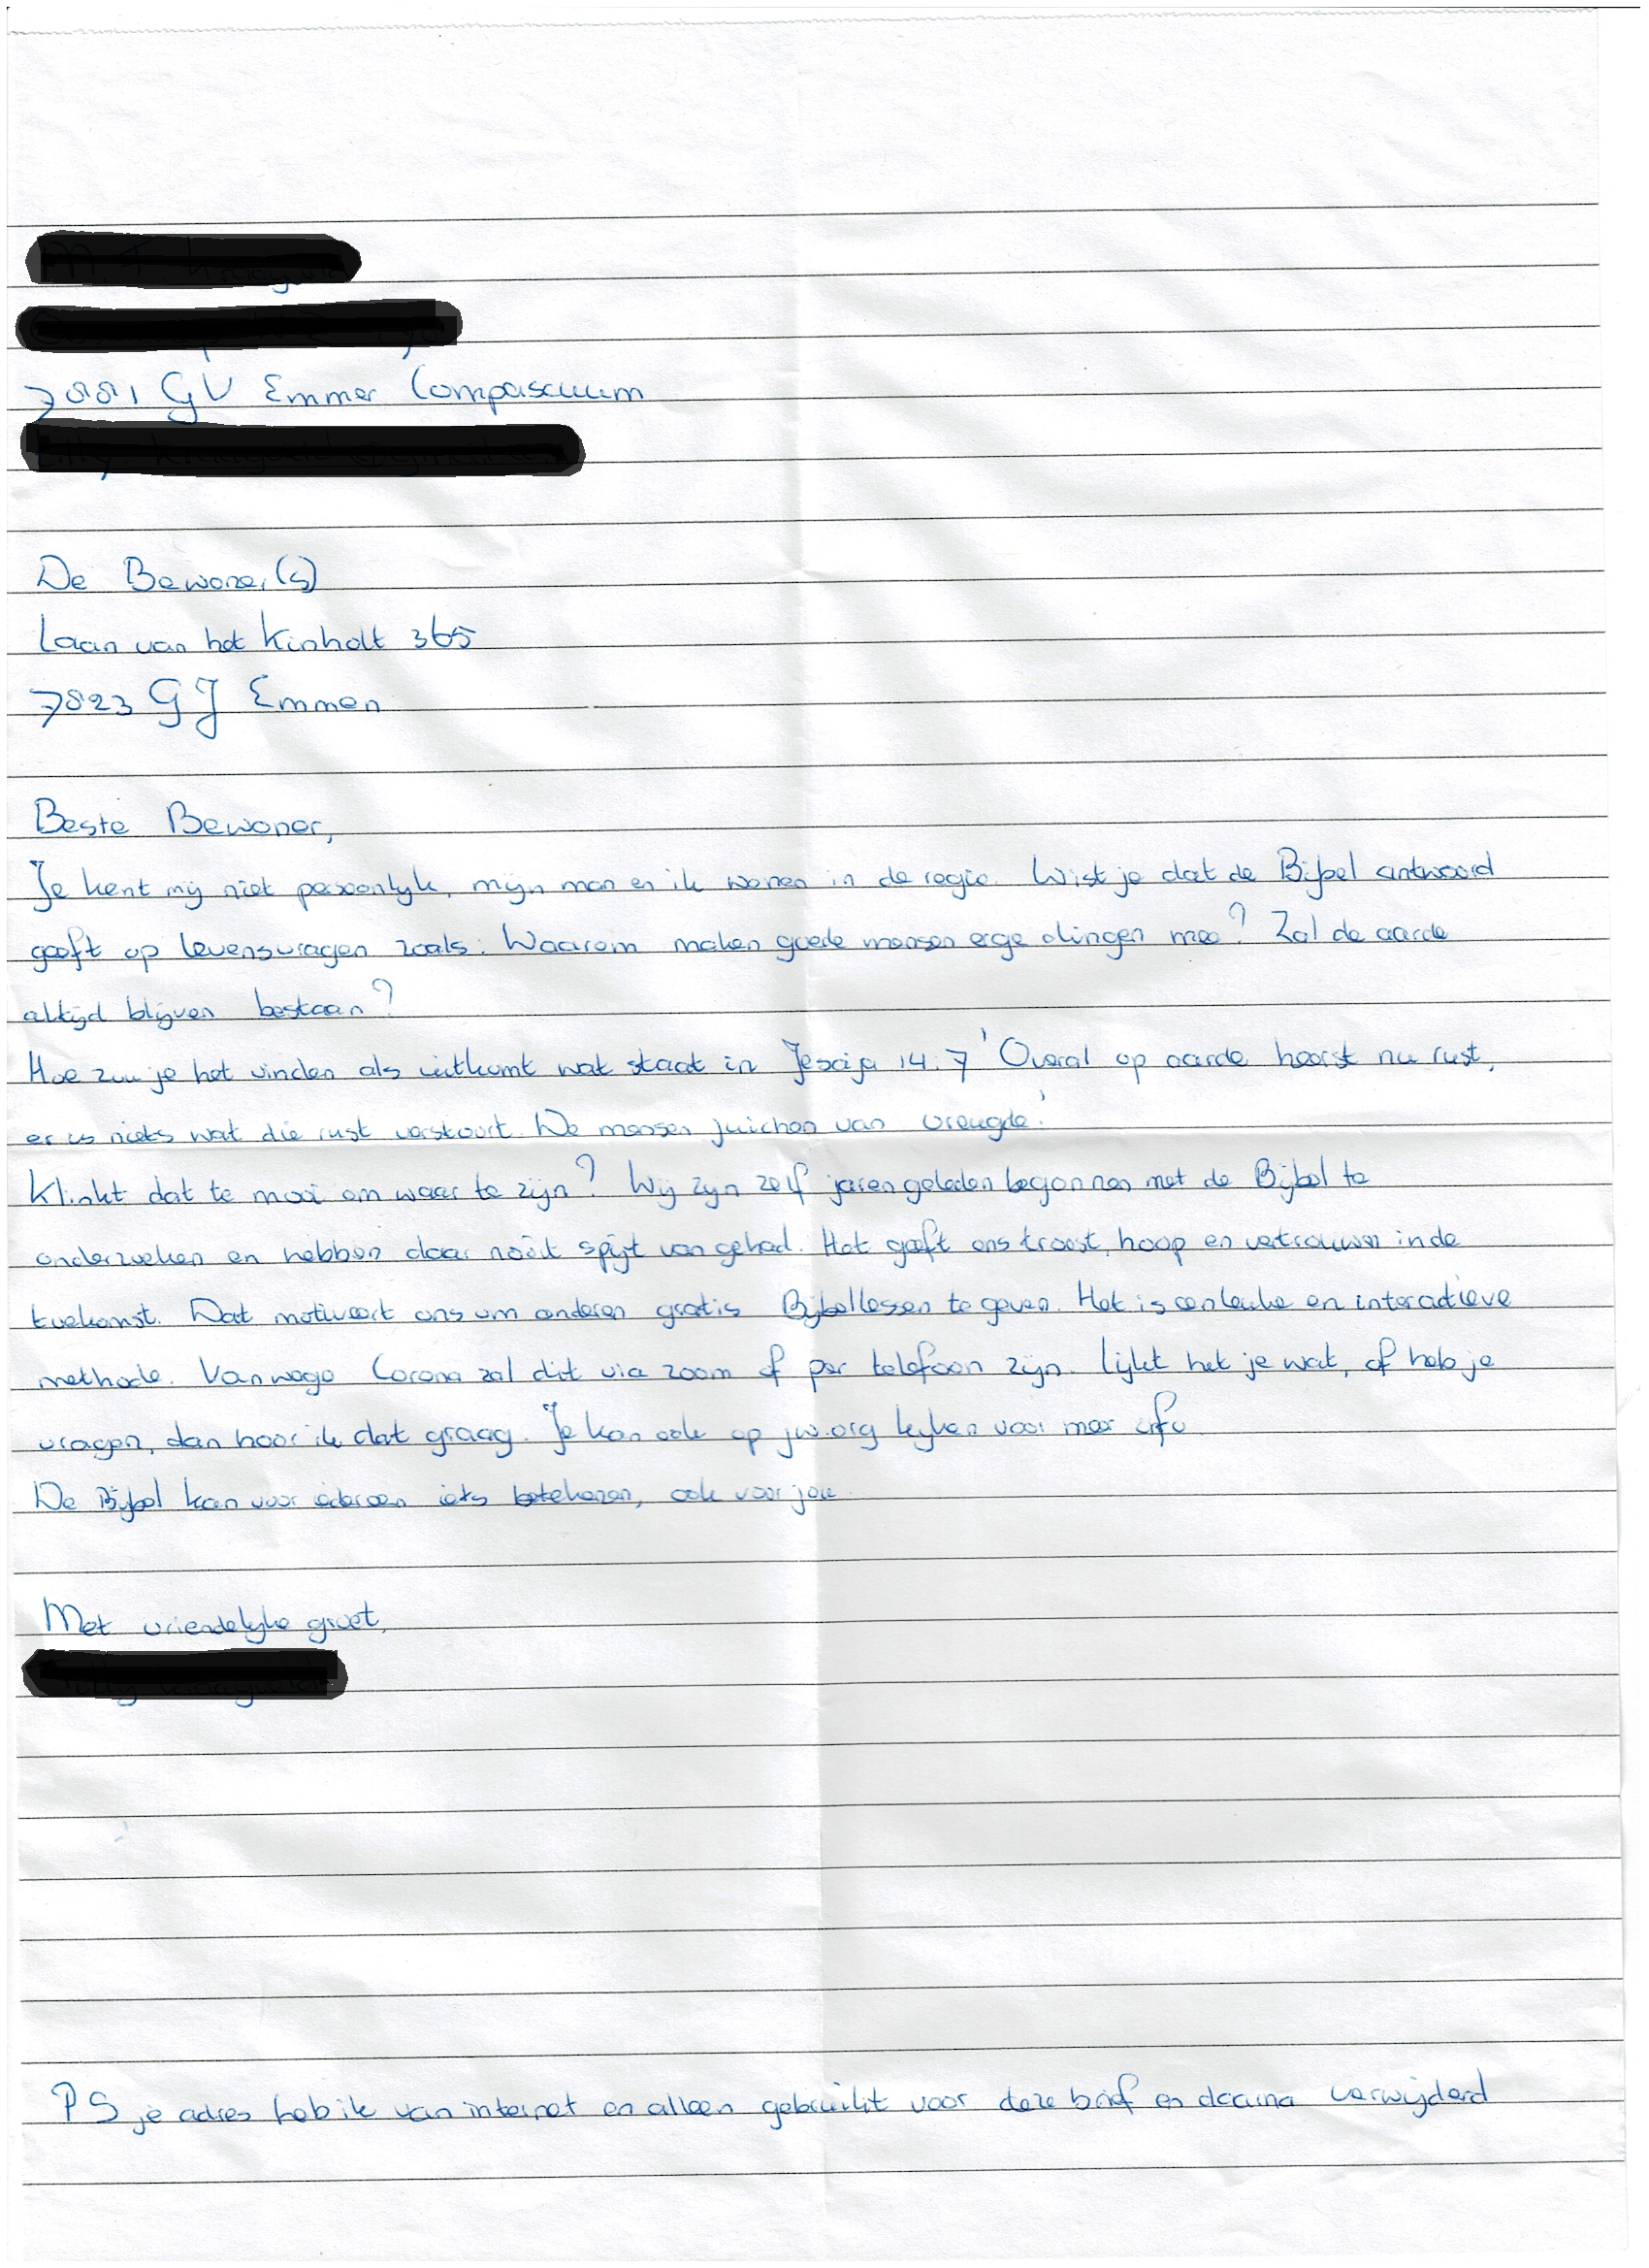 7881 GV Emmer Compascuum
De Bewoner(s)
Laan van het Kinholt 365
7823 GJ Emmen
Beste Bewoner,
Je kent mij niet persoonlijk, mijn man en ik wonen in de regio. Wist je dat de Bijbel antwoord
geeft op levensvragen zoals: Waarom maken goede mensen erge dingen mee? Zal de aarde
altijd blijven bestaan?
Hoe zou je het vinden als uitkomt wat staat in Jesaja 14:7 'Overal op aarde heerst nu rust,
er is niets wat die rust verstoort. De mensen juichen van vreugde.'
Klinkt dat te mooi om waar te zijn? Wij zijn zelf jaren geleden begonnen met de Bijbel te
onderzoeken en hebben daar nooit spijt van gehad. Het geeft ons troost, hoop en vertrouwen in de
toekomst. Dat motiveert ons om anderen gratis Bijbellessen te geven. Het is een leuke en interactieve
methode. Vanwege Corona zal dit via zoom of per telefoon zijn. Lijkt het je wat, of heb je
vragen, dan hoor ik dat graag. Je kan ook op jw.org kijken voor meer info.
De Bijbel kan voor iedereen iets betekenen, ook voor jou.
Met vriendelijke groet,
PS je adres heb ik van internet en alleen gebruikt voor deze brief en daarna verwijderd